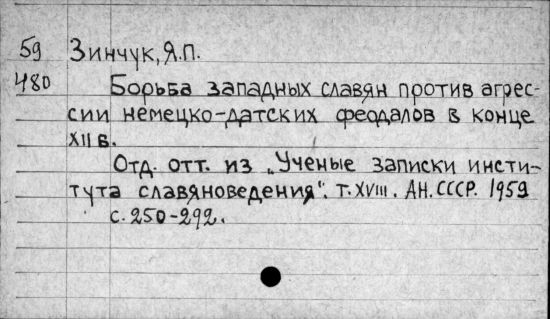 59 Зинчук, Я.П.
480 Борьба западных славян против агрес-
сии немецко-датских феодалов в конце
XII в.
Отд. отт. из „Ученые записки инсти-
тута славяноведения". т. XVIII. АН. СССР. 1959
с. 250-292.